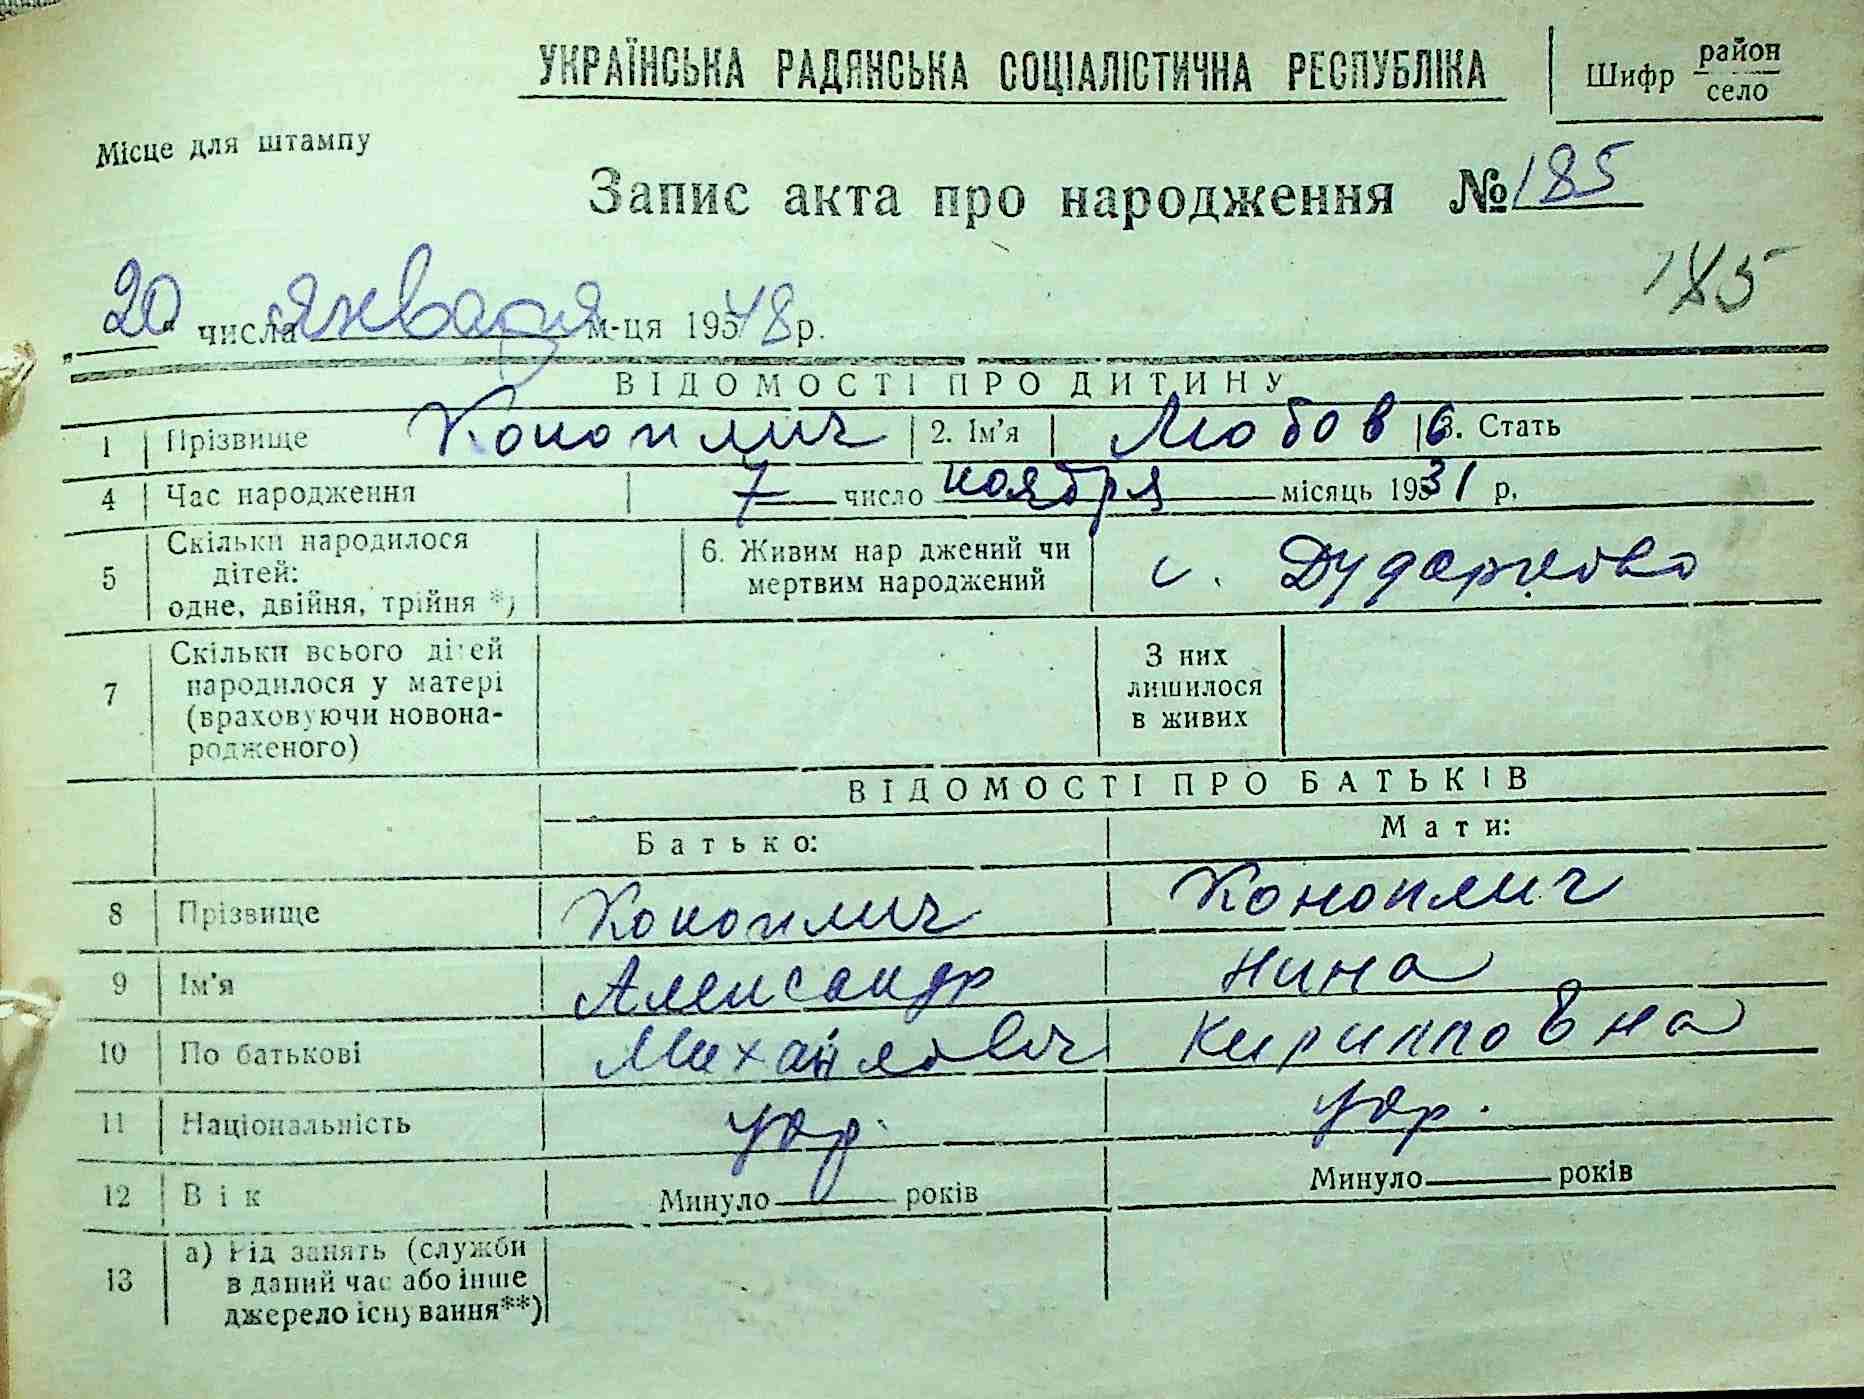 УКРАЇНСЬКА РАДЯНСЬКА СОЦІАЛІСТИЧНА РЕСПУБЛІКА
Шифр район
село
Місце для штампу
Запис акта про народження № 185
185
20 числа января м-ця 1948 р.
ВІДОМОСТІ ПРО ДИТИНУ
1 Прізвище Коноплич 2. Ім'я Любовь 3. Стать
4 Час народження 7 число ноября місяць 1931 р.
5 Скільки народилося дітей: одне, двійня, трійня *)
6. Живим нар джений чи мертвим народжений с. Дударково
7 Скільки всього дітей народилося у матері (враховуючи новона-родженого)
З них лишилося в живих
ВІДОМОСТІ ПРО БАТЬКІВ
Батько: Мати:
8 Прізвище Коноплич Коноплич
9 Ім'я Александр Нина
10 По батькові Михайлович Кирилловна
11 Національність укр. укр.
12 Вік Минуло років Минуло років
13 а) Рід занять (служби в даний час або інше джерело існування**)